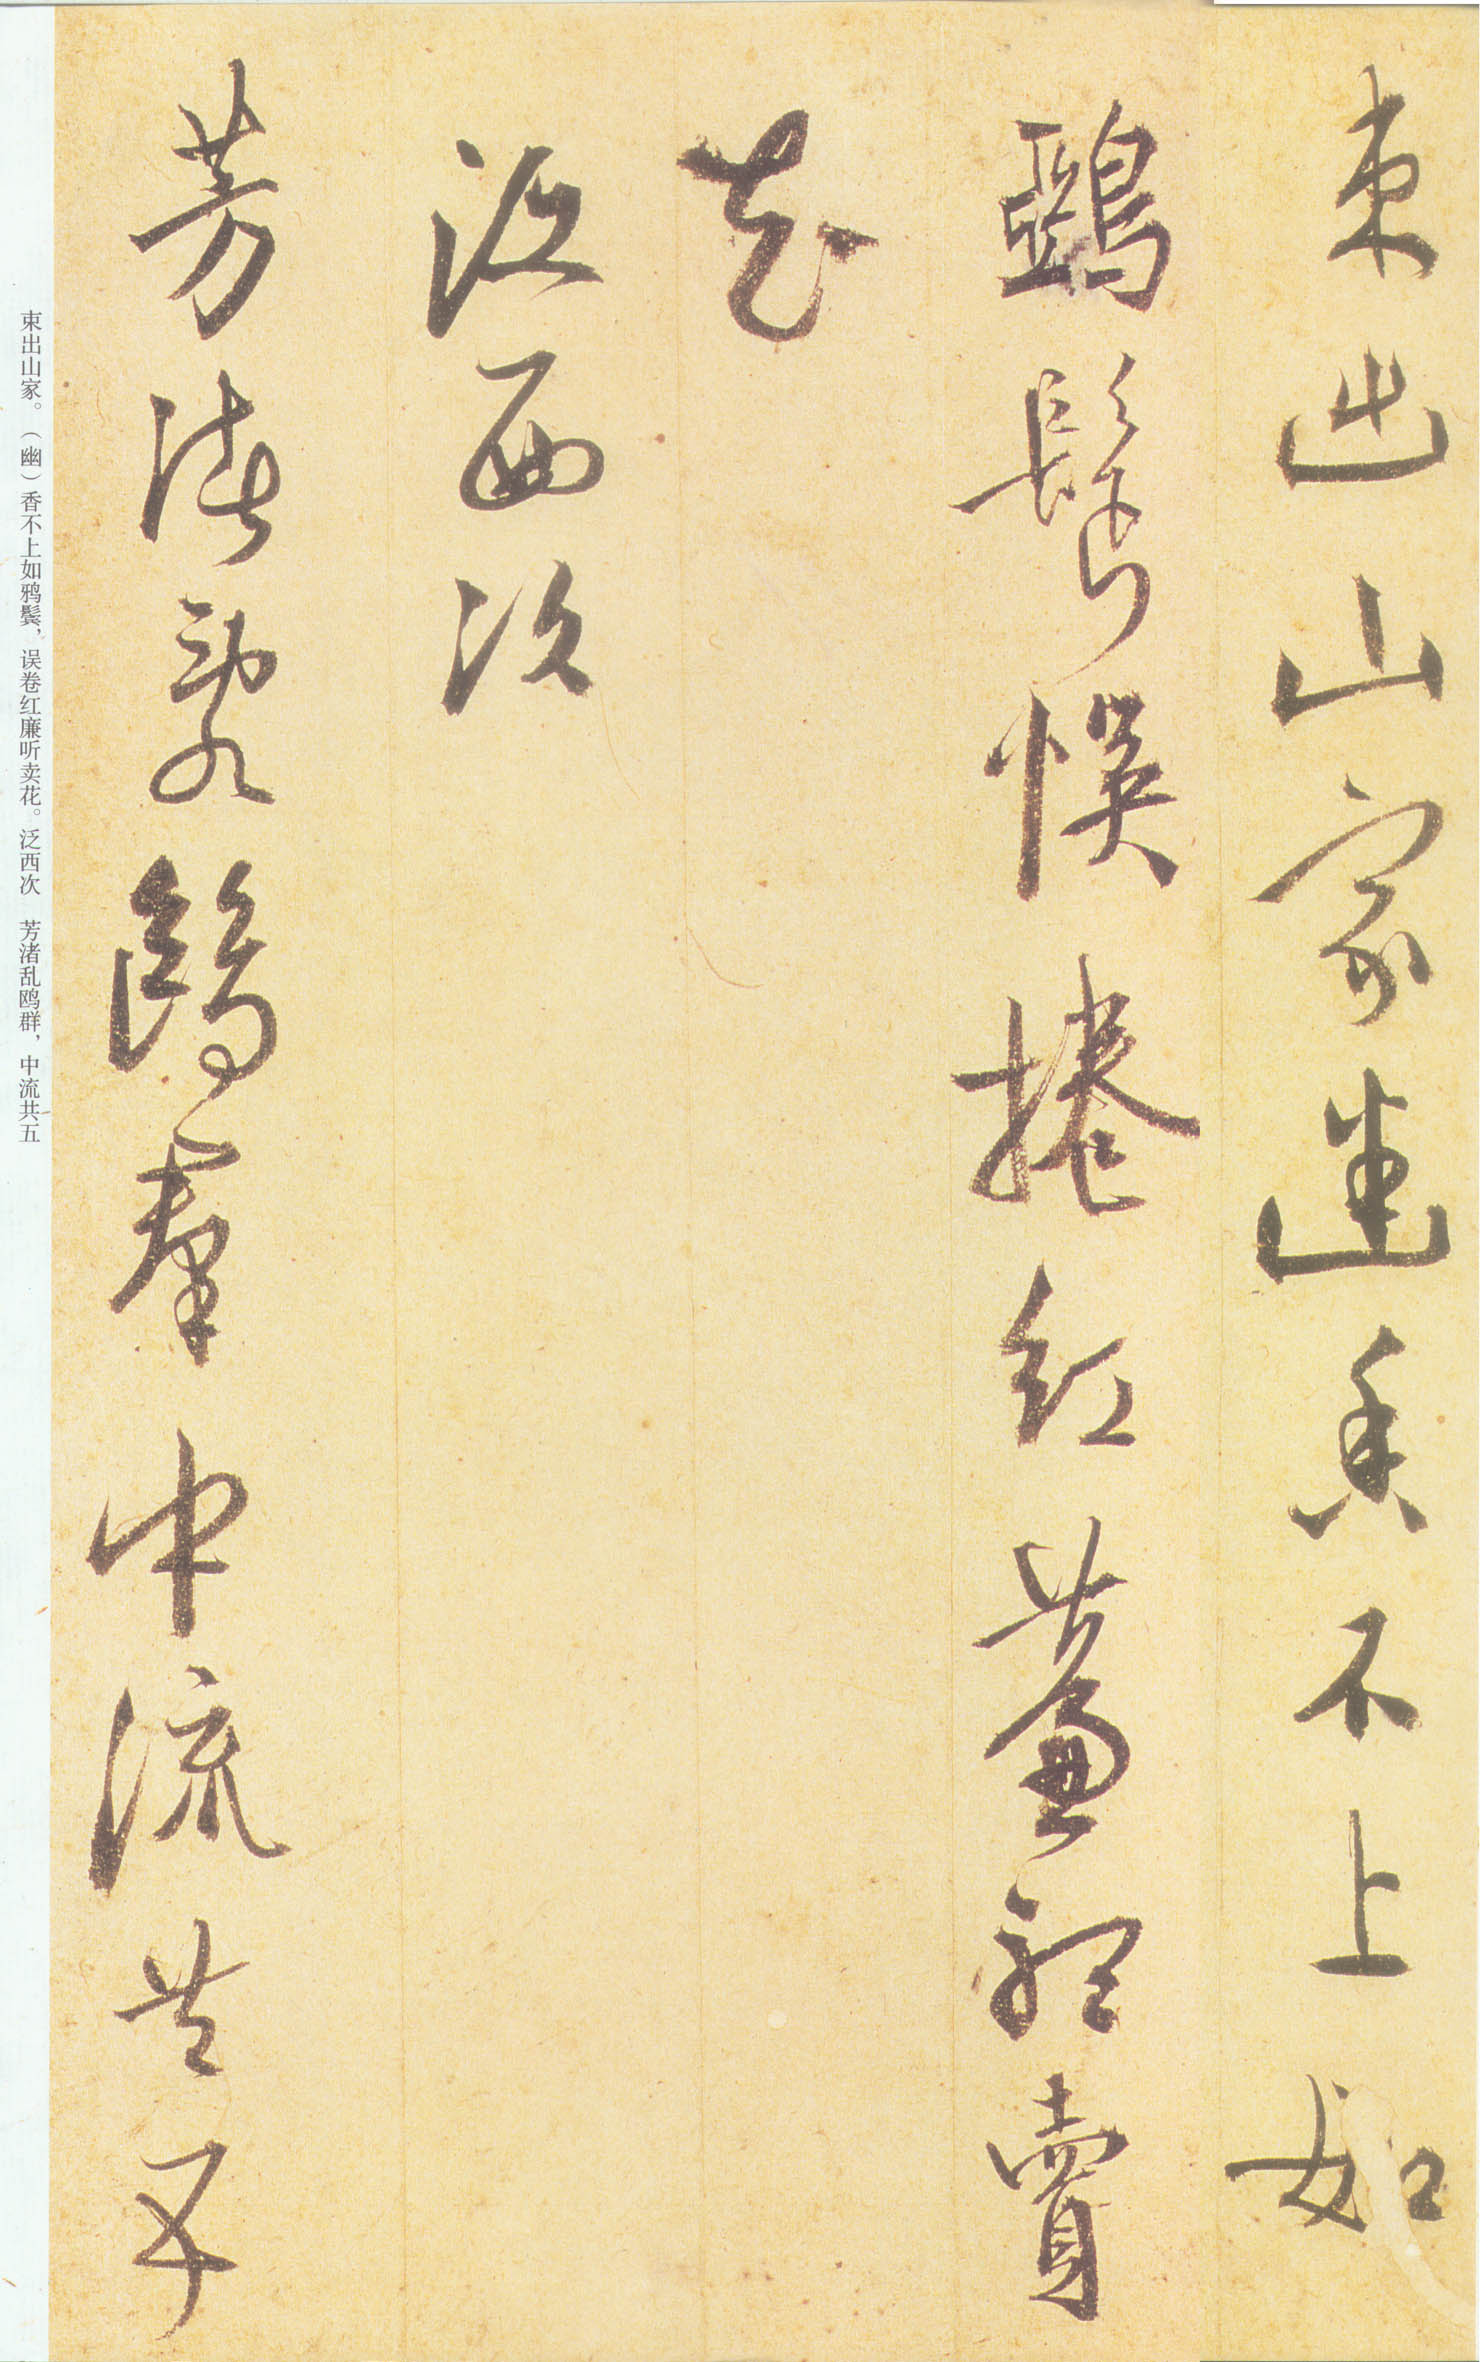 束出山家幽香不上如
鵶鬢悮捲紅簾聽賣
花
泛西次
芳渚亂鷗羣中流共五
束出山家。（幽）香不上如鸦鬓，误卷红廉听卖花。泛西次　芳渚乱鸥群，中流共五